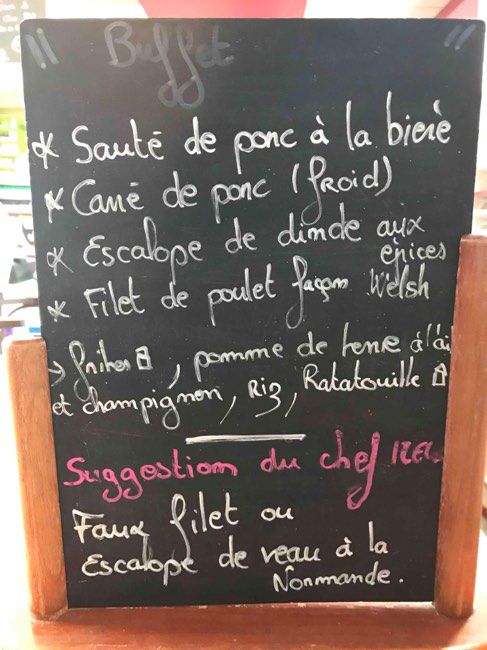 Buffet
* Sauté de porc à la bière
* Carré de porc (froid)
* Escalope de dinde aux épices
* Filet de poulet façon Welsh
→ frites, pomme de terre à l'ail
et champignon, Riz, Ratatouille
Suggestion du chef
Faux filet ou
Escalope de veau à la
Normande.